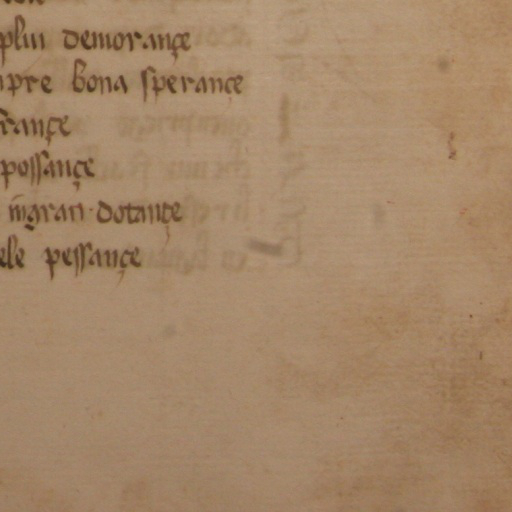 plui demorançe
npre bona sperançe
françe
possançe
m̄gran·dotançe
ele pessançe